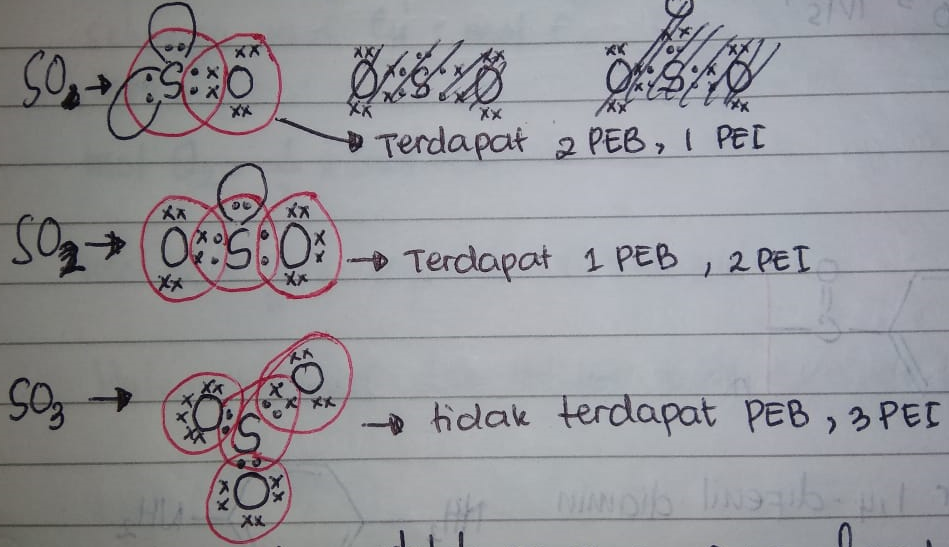 SO₂ → S O
→ Terdapat 2 PEB, 1 PEI
SO₂ → O S O → Terdapat 1 PEB, 2 PEI
SO₃ → O S O O → tidak terdapat PEB, 3 PEI